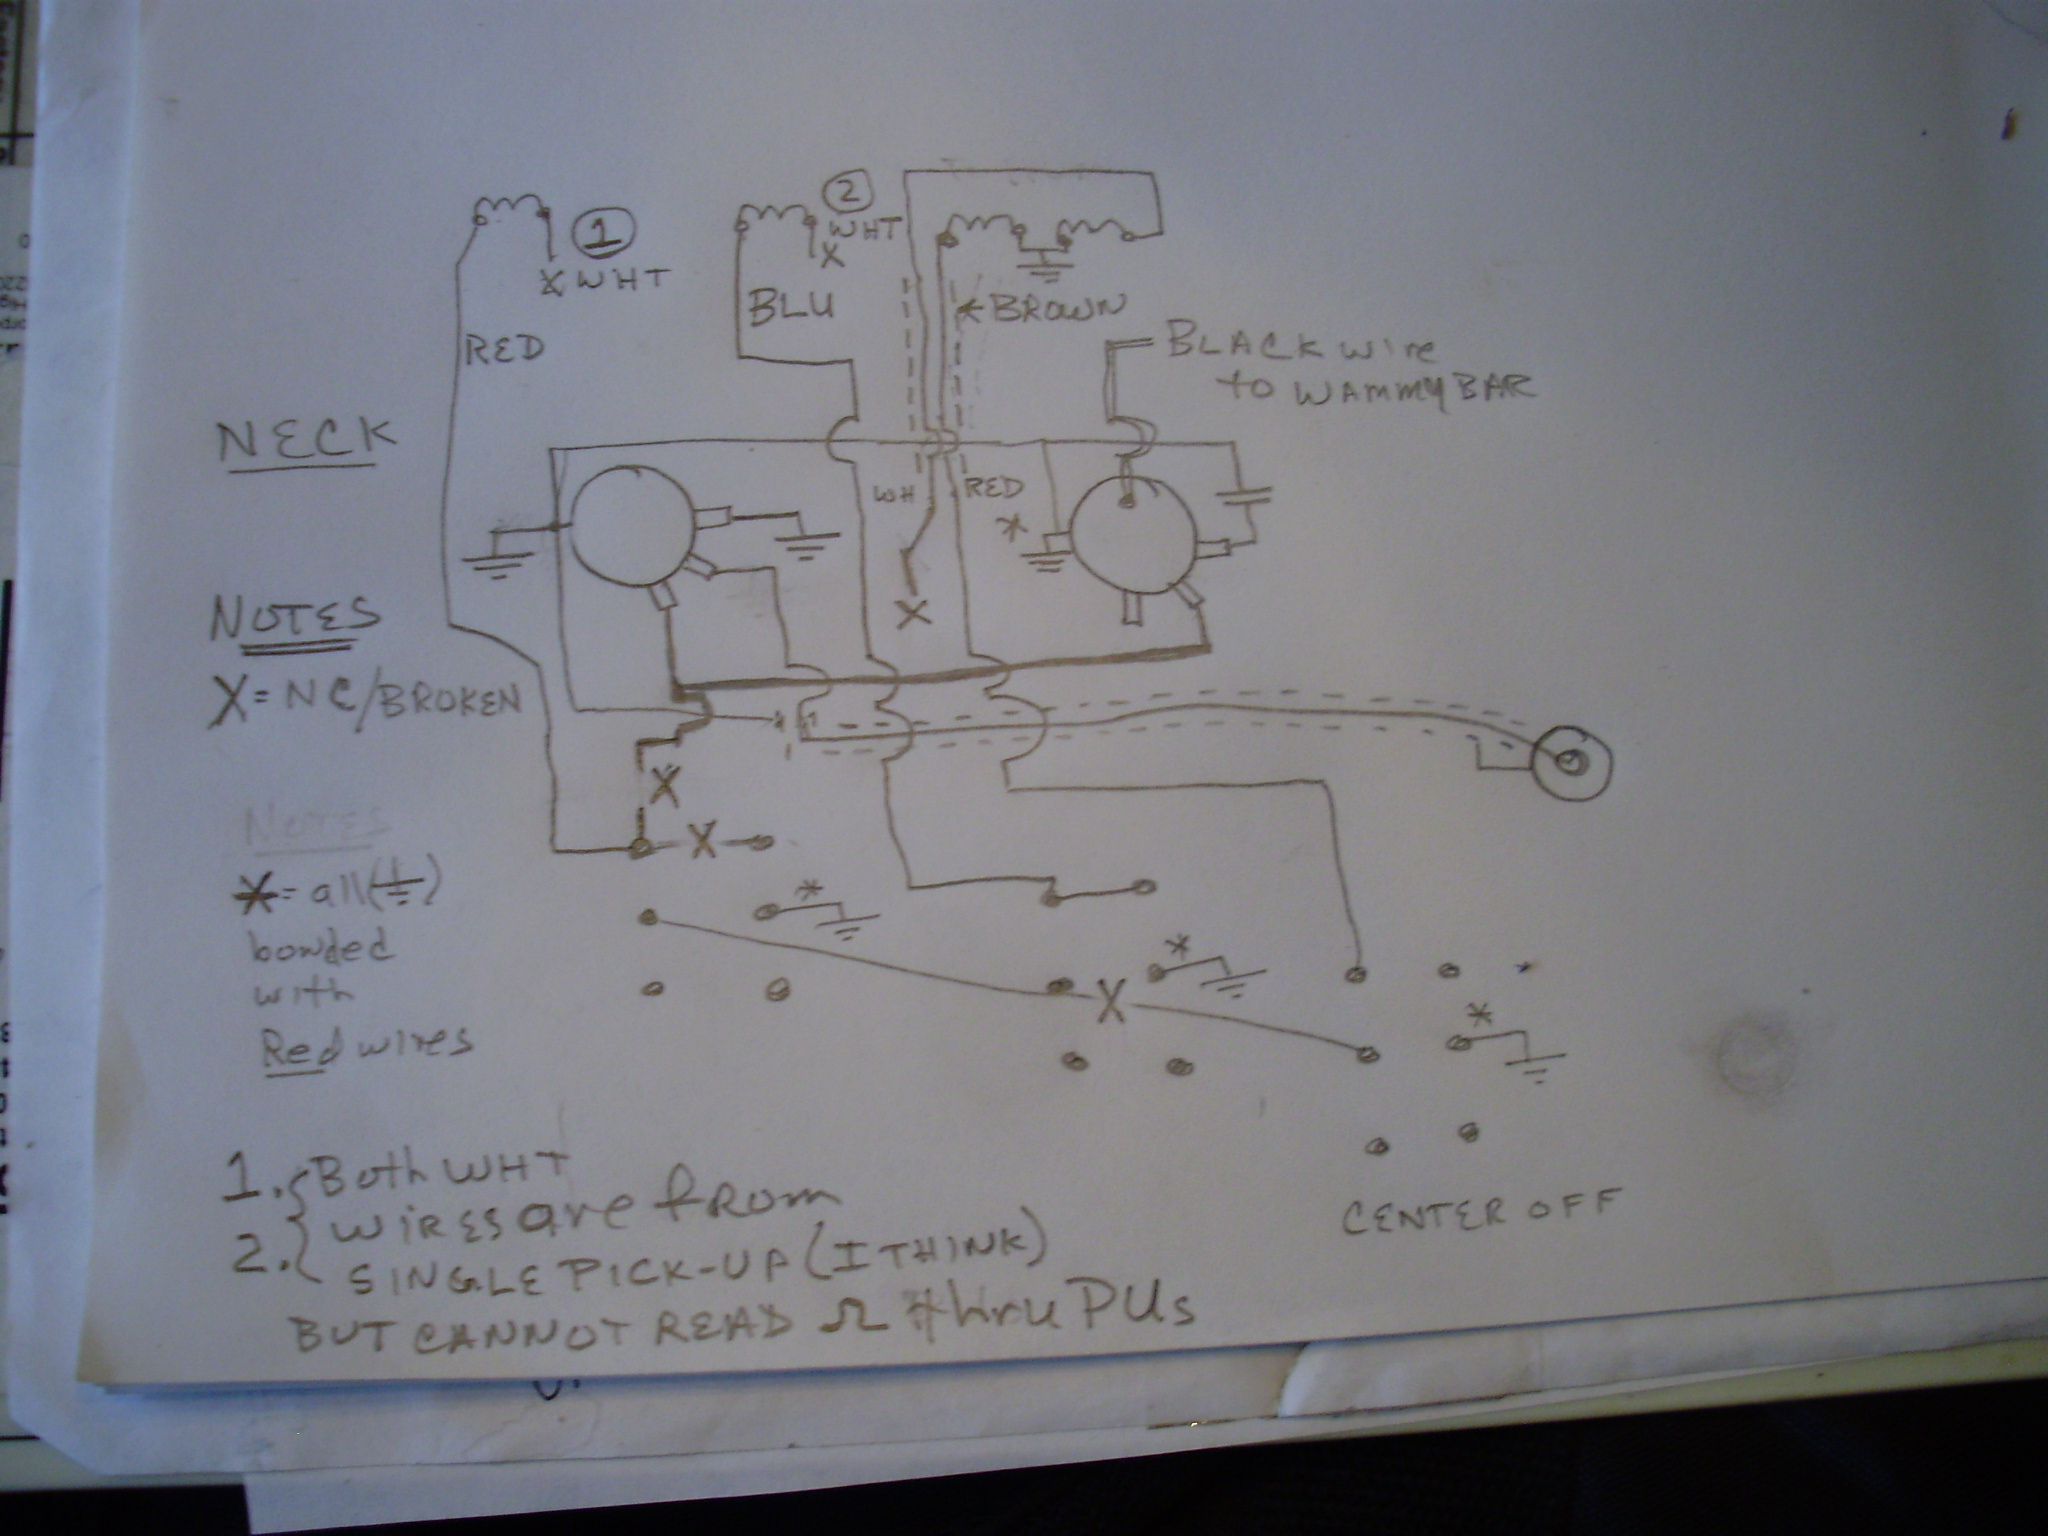 1
X WHT
2
WHT
X
RED
BLU
BROWN
BLACK wire
to WAMMY BAR
NECK
WH
RED
*
X
NOTES
X = NC/BROKEN
X
X
NOTES
* = all (⏚)
bonded
with
Red wires
*
*
X
*
CENTER OFF
1. Both WHT
WIRES are from
2. SINGLE PICK-UP (I THINK)
BUT CANNOT READ Ω thru PUs